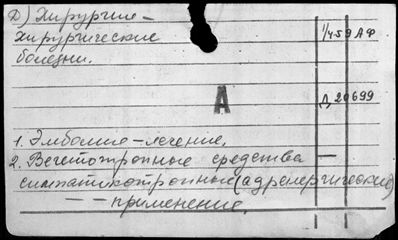 Д) Хирургия –
хирургические
болезни.
1/459 АФ
А
Д 20699
1. Эмболия – лечение,
2. Вегетотропные средства –
симпатикотропные (адренергические)
– – применение.